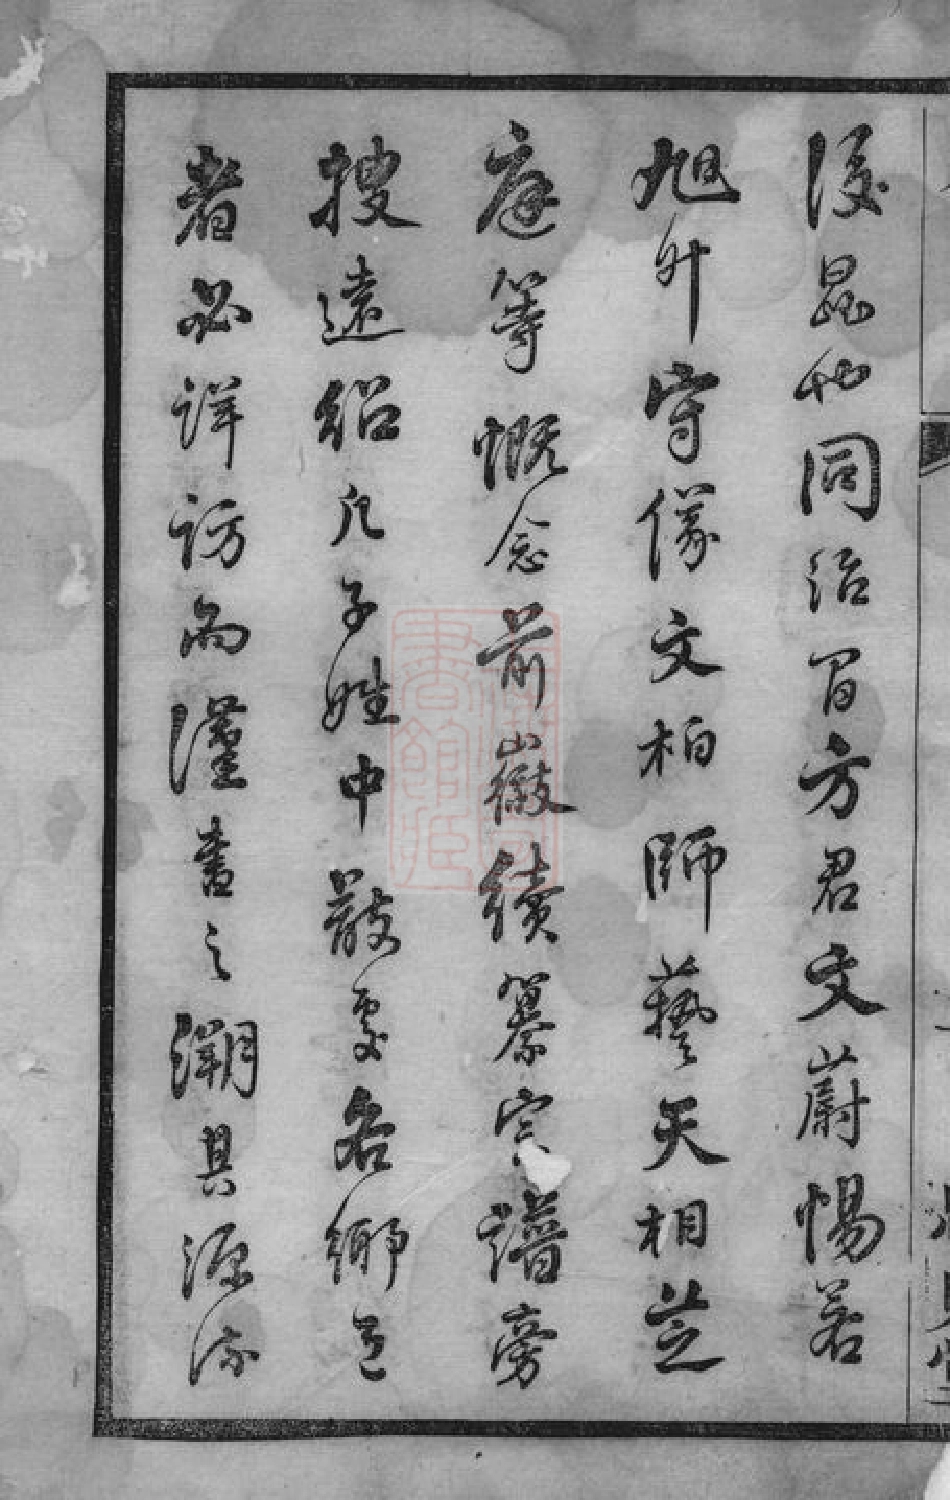 後昆也同治間方君文蔚惕若
旭升守儀文柏師藝天相芝
庭等慨念前徽續纂宗譜旁
搜遠紹凡子姓中散處各鄉邑
者必詳訪而謹書之溯其源流